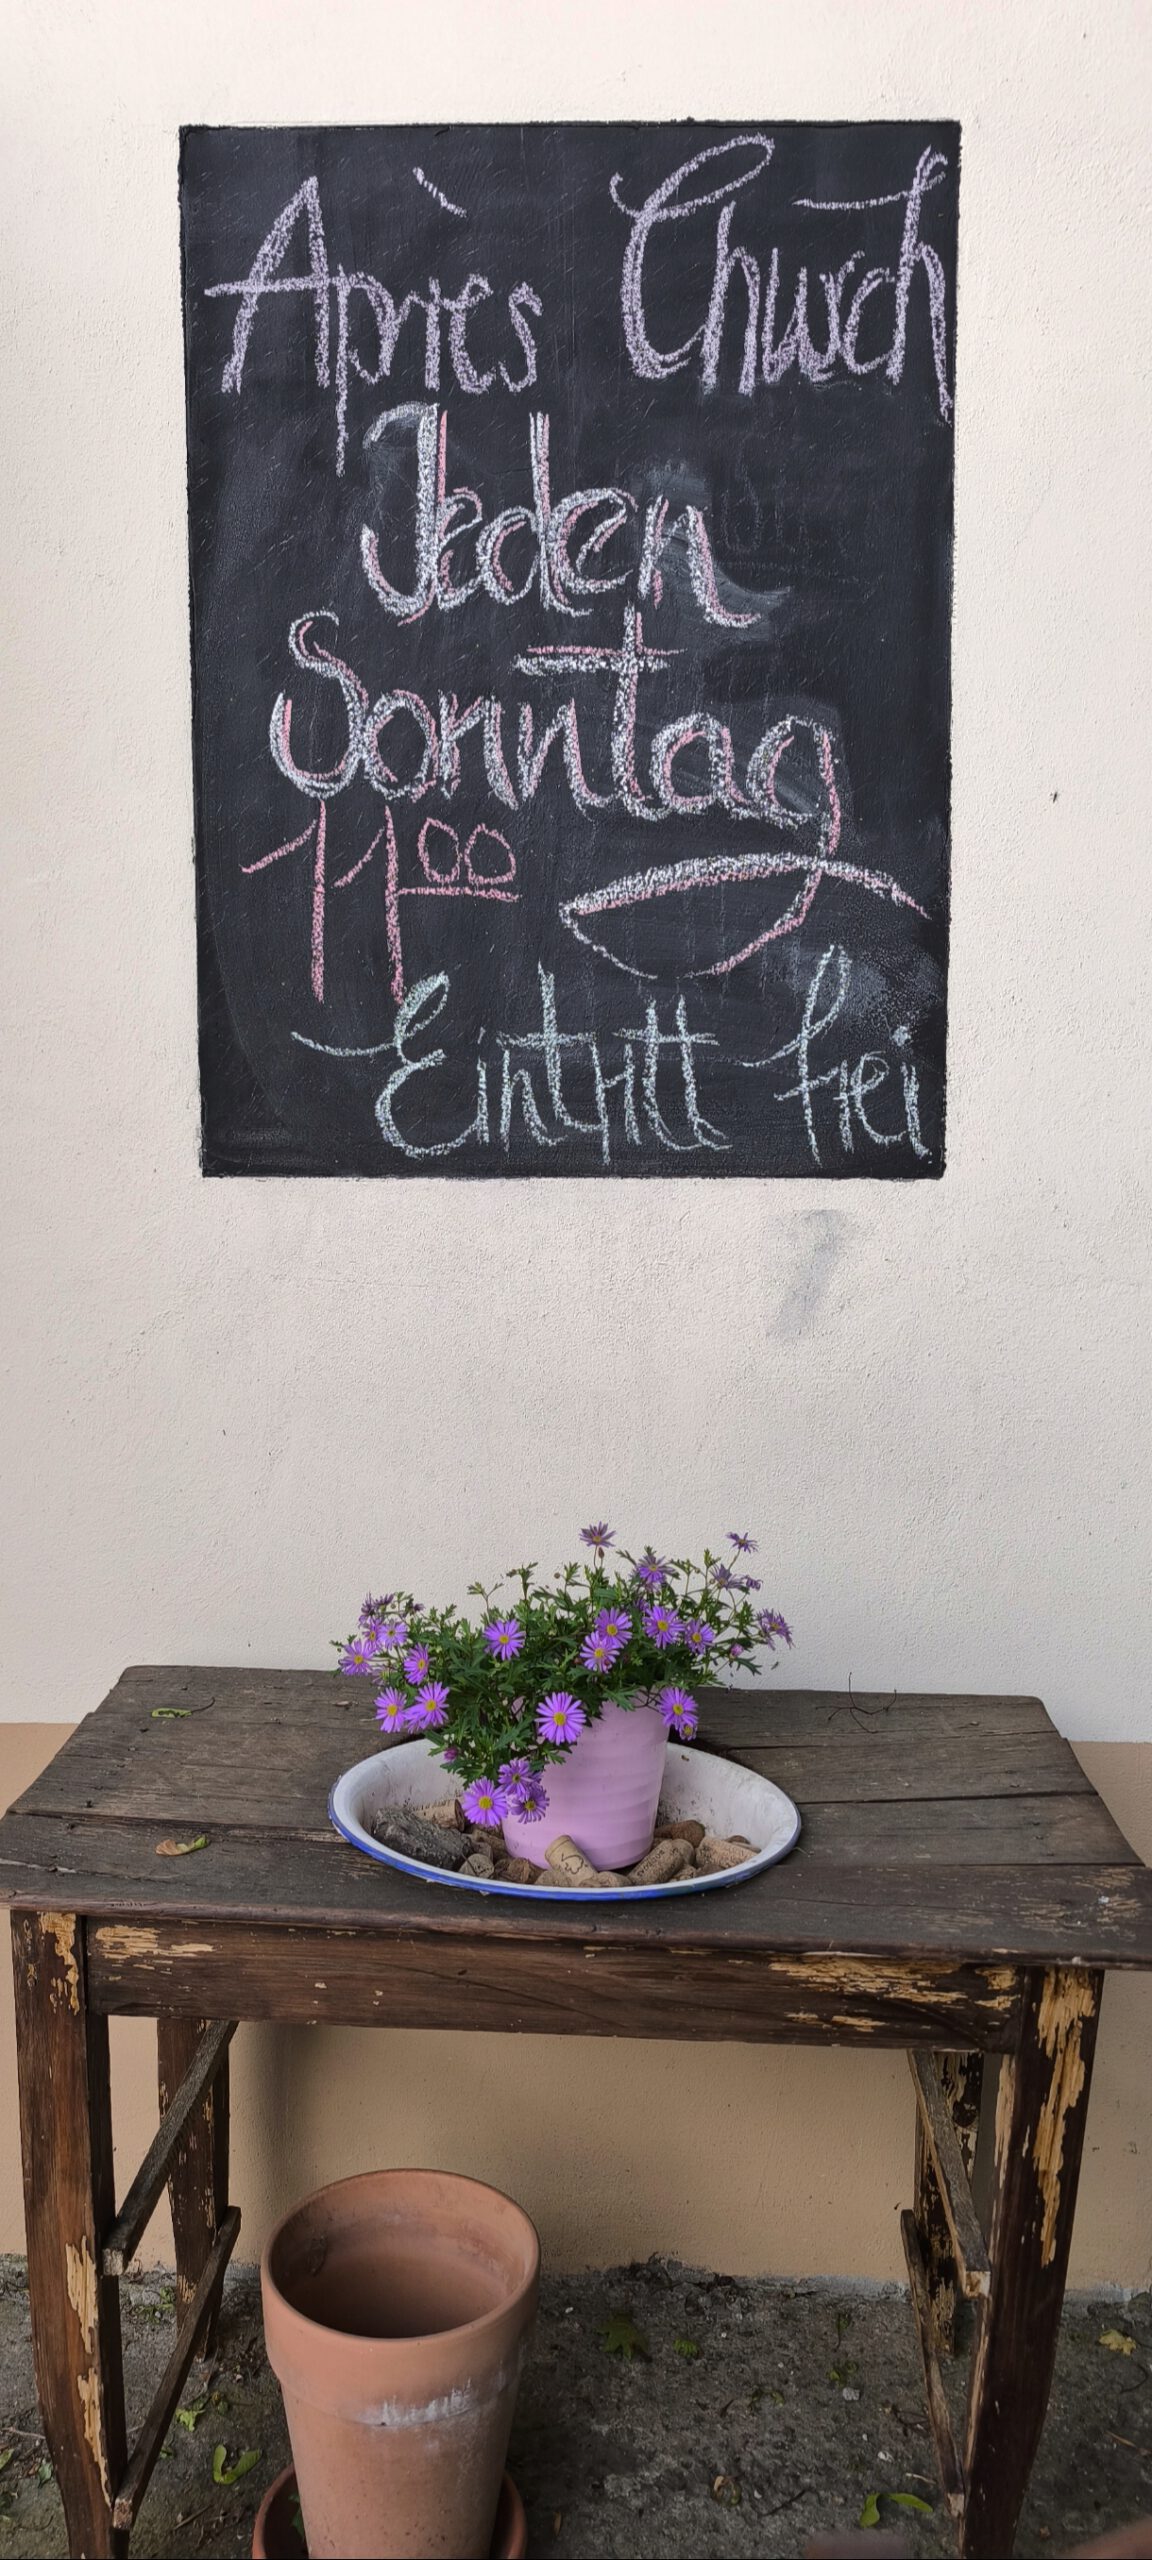 Après Church
Jeden
Sonntag
11 00
Eintritt frei